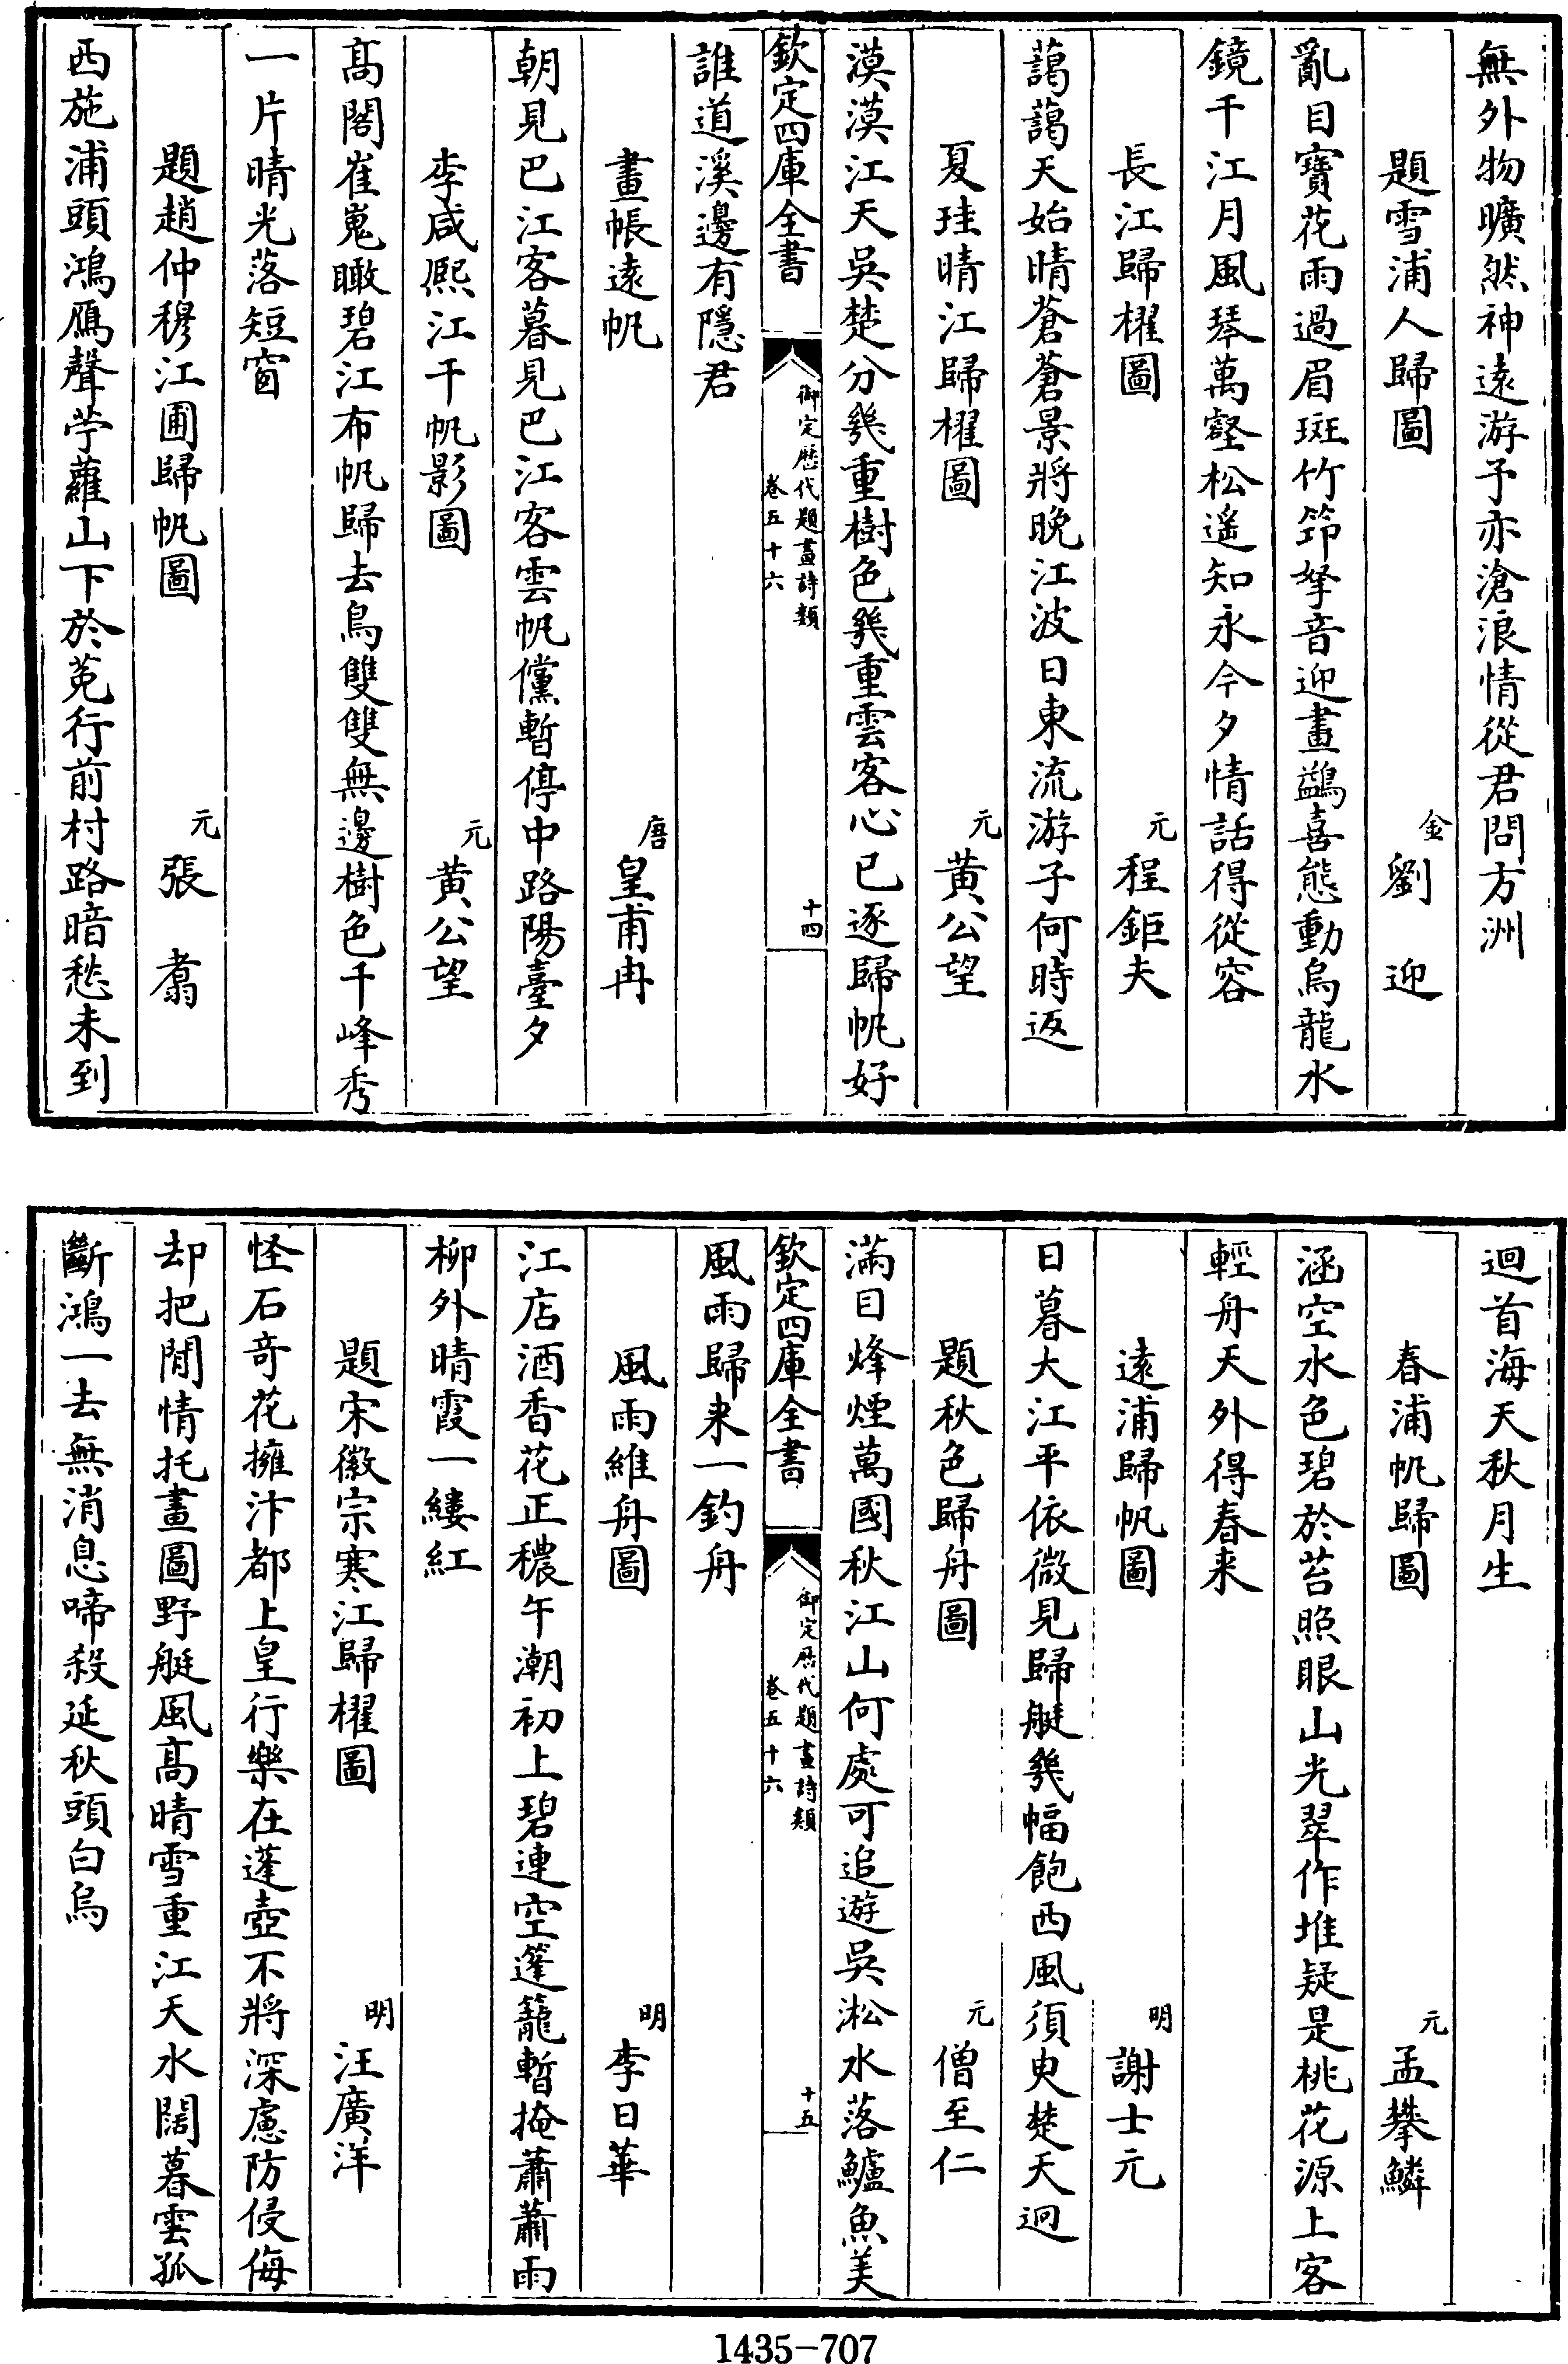 無外物曠然神遠游予亦滄浪情從君問方洲
題雪浦人歸圖 金 劉迎
亂目寶花雨過眉斑竹笻孥音迎畫鷁喜態動烏龍水
鏡千江月風琴萬壑松遥知永今夕情話得從容
長江歸櫂圖 元 程鉅夫
藹藹天始晴蒼蒼景將晚江波日東流游子何時返
夏珪晴江歸櫂圖 元 黄公望
漠漠江天吳楚分幾重樹色幾重雲客心已逐歸帆好
欽定四庫全書 御定歷代題畫詩類 卷五十六 十四
誰道溪邊有隱君
畫帳遠帆 唐 皇甫冉
朝見巴江客暮見巴江客雲帆儻暫停中路陽臺夕
李咸熙江干帆影圖 元 黄公望
髙閣崔嵬瞰碧江布帆歸去鳥雙雙無邊樹色千峰秀
一片晴光落短窗
題趙仲穆江圃歸帆圖 元 張翥
西施浦頭鴻鴈聲苧蘿山下於菟行前村路暗愁未到
迴首海天秋月生
春浦帆歸圖 元 孟攀鱗
涵空水色碧於苔照眼山光翠作堆疑是桃花源上客
輕舟天外得春来
遠浦歸帆圖 明 謝士元
日暮大江平依微見歸艇幾幅飽西風須臾楚天迥
題秋色歸舟圖 元 僧至仁
滿目烽煙萬國秋江山何處可追遊吳淞水落鱸魚美
欽定四庫全書 御定歷代題畫詩類 卷五十六 十五
風雨歸来一釣舟
風雨維舟圖 明 李日華
江店酒香花正穠午潮初上碧連空篷籠暫掩蕭蕭雨
柳外晴霞一縷紅
題宋徽宗寒江歸櫂圖 明 汪廣洋
怪石奇花擁汴都上皇行樂在蓬壺不將深慮防侵侮
却把閒情托畫圖野艇風髙晴雪重江天水闊暮雲孤
斷鴻一去無消息啼殺延秋頭白烏
1435-707